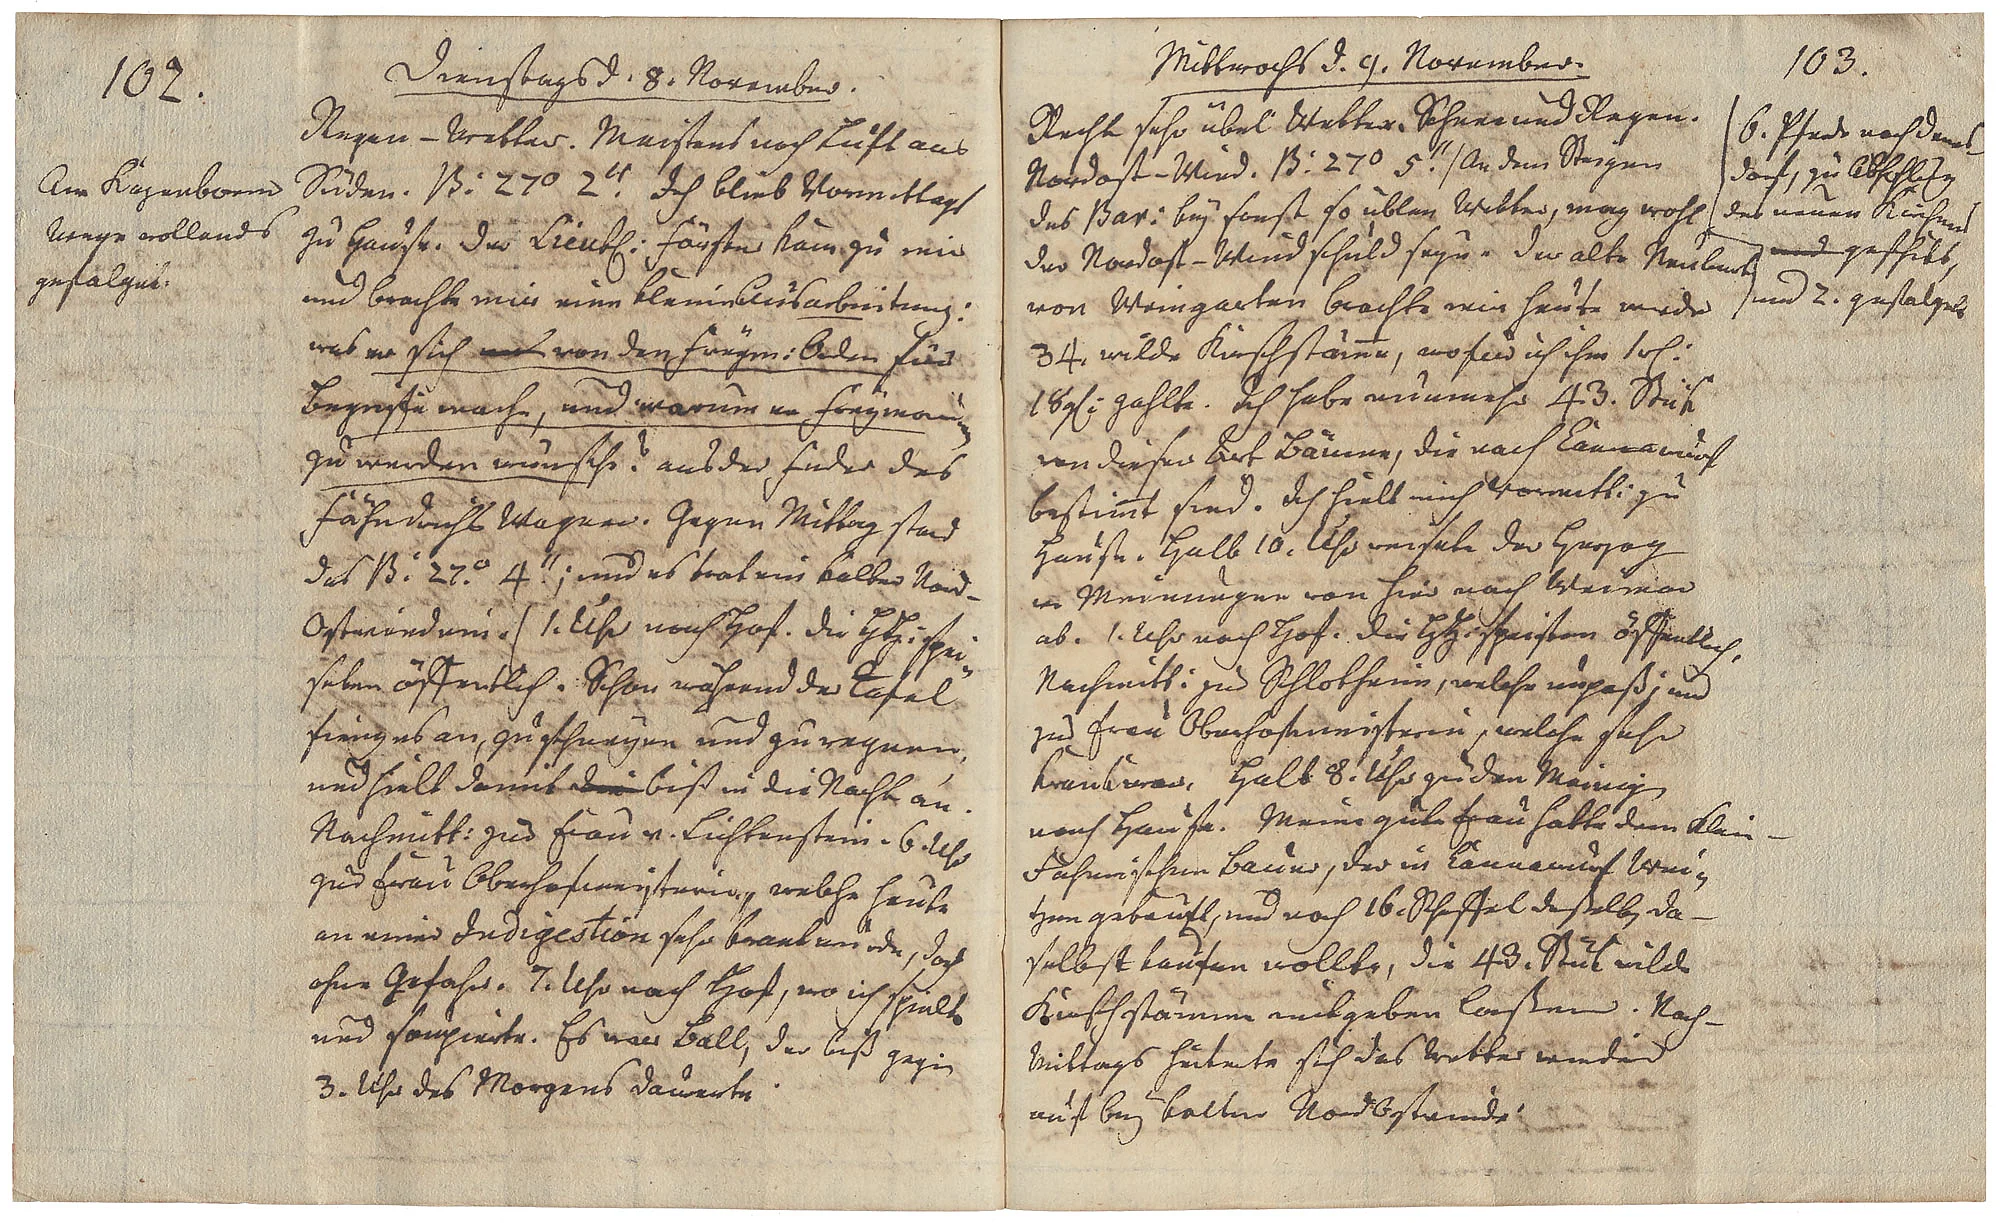 102.
Dienstags d. 8. November.
Regen-Wetter. Meistens noch Luft aus
Süden. B: 27° 2". Ich blieb Vormittags
zu Hause. Der Lieut: Förster kam zu mir
und brachte mir eine kleine Ausarbeitung:
was er sich von dem Freym: Orden für
Begriffe mache, und warum er Freymaurer
zu werden wünsche? aus der Feder des
Fähndrichs Wagner. Gegen Mittag stand
das B: 27.° 4"; und es trat ein kalter Nord-
Ostwind ein. 1. Uhr nach Hof. die HH: spei-
seten öffentlich. Schon während der Tafel
fieng es an, zu schneyen und zu regnen,
und hielt damit biß in die Nacht an.
Nachmitt: zur Frau v. Lichtenstein. 6. Uhr
zur Frau Oberhofmeisterin, welche heute
an einer Indigestion sehr krank wurde, doch
ohne Gefahr. 7. Uhr nach Hof, wo ich spielte
und soupierte. Es war Ball, der biß gegen
3. Uhr des Morgens dauerte.
Am
Wege vollends
gefälget.
103.
Mittwochs d. 9. November.
Recht sehr übel Wetter. Schnee und Regen.
Nordost-Wind. B: 27° 5". An dem Steigen
des Bar: bey sonst so üblen Wetter, mag wohl
der Nordost-Wind schuld seyn. Der alte
von Weingarten brachte mir heute wieder
34. wilde Kirschstämme, wofür ich ihm 1 rh:
18 gl: zahlte. Ich habe nunmehr 43. Stük
von dieser Art Bäume, die nach Cannawurf
bestimmt sind. Ich hielt mich Vormitt: zu
Hause. Halb 10. Uhr reisete der Herzog
v. Meinungen von hier nach Weimar
ab. 1. Uhr nach Hof. die HH: speisten öffentlich.
Nachmitt: zur Schlotheim, welche unpaß; und
zur Frau Oberhofmeisterin, welche sehr
krank war. Halb 8. Uhr zu den Meinigen
nach Hause. Meine gute Frau hatte dem Klein-
Fahnerischen Bauer, der in Cannawurf Wei-
tzen gekauft, und noch 16. Scheffel deßelben da-
selbst kaufen wollte, die 43. Stük wilde
Kirschstämme mitgeben laßen. Nach-
Mittags heiterte sich das Wetter wieder
auf bey kalten Nord Ostwinde.
6. Pferde nach
dorf, zu
des neuen
geschikt,
und 2. gefälget